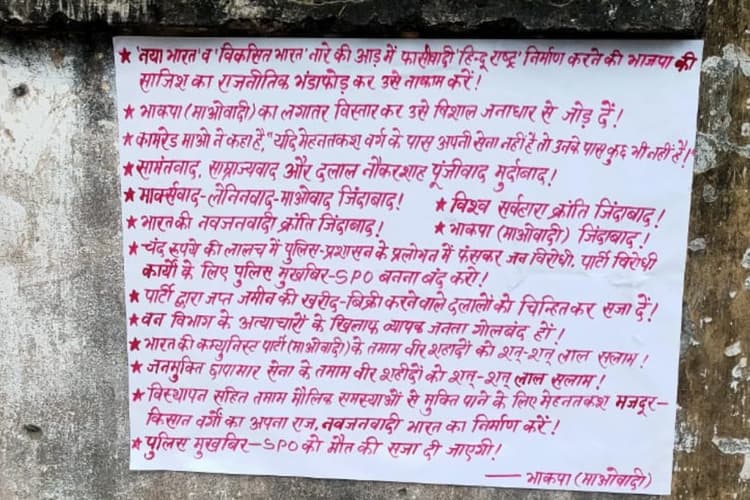 ★ 'नया भारत' व 'विकसित भारत' नारे की आड़ में फासीवादी 'हिन्दू राष्ट्र' निर्माण करने की भाजपा की
साजिश का राजनीतिक भंडाफोड़ कर उसे नाकाम करें!
★ भाकपा (माओवादी) का लगातर विस्तार कर उसे विशाल जनाधार से जोड़ दें!
★ कामरेड माओ ने कहा है, "यदि मेहनतकश वर्ग के पास अपनी सेना नहीं है तो उनके पास कुछ भी नहीं है!"
★ सामंतवाद, साम्राज्यवाद और दलाल नौकरशाह पूंजीवाद मुर्दाबाद!
★ मार्क्सवाद-लेनिनवाद-माओवाद जिंदाबाद! ★ विश्व सर्वहारा क्रांति जिंदाबाद!
★ भारत की नवजनवादी क्रांति जिंदाबाद! ★ भाकपा (माओवादी) जिंदाबाद!
★ चंद रूपये की लालच में पुलिस-प्रशासन के प्रलोभन में फंसकर जन विरोधी, पार्टी विरोधी
कार्यो के लिए पुलिस मुखबिर-SPO बनना बंद करो!
★ पार्टी द्वारा जप्त जमीन की खरीद-बिक्री करने वाले दलालों को चिन्हित कर सजा दें!
★ वन विभाग के अत्याचारों के खिलाफ व्यापक जनता गोलबंद हों!
★ भारत की कम्युनिस्ट पार्टी (माओवादी) के तमाम वीर शहीदों को शत्-शत् लाल सलाम!
★ जनमुक्ति छापामार सेना के तमाम वीर शहीदों को शत्-शत् लाल सलाम!
★ विस्थापन सहित तमाम मौलिक समस्याओं से मुक्ति पाने के लिए मेहनतकश मजदूर-
किसान वर्गों का अपना राज, नवजनवादी भारत का निर्माण करें!
★ पुलिस मुखबिर-SPO को मौत की सजा दी जाएगी!
— भाकपा (माओवादी)